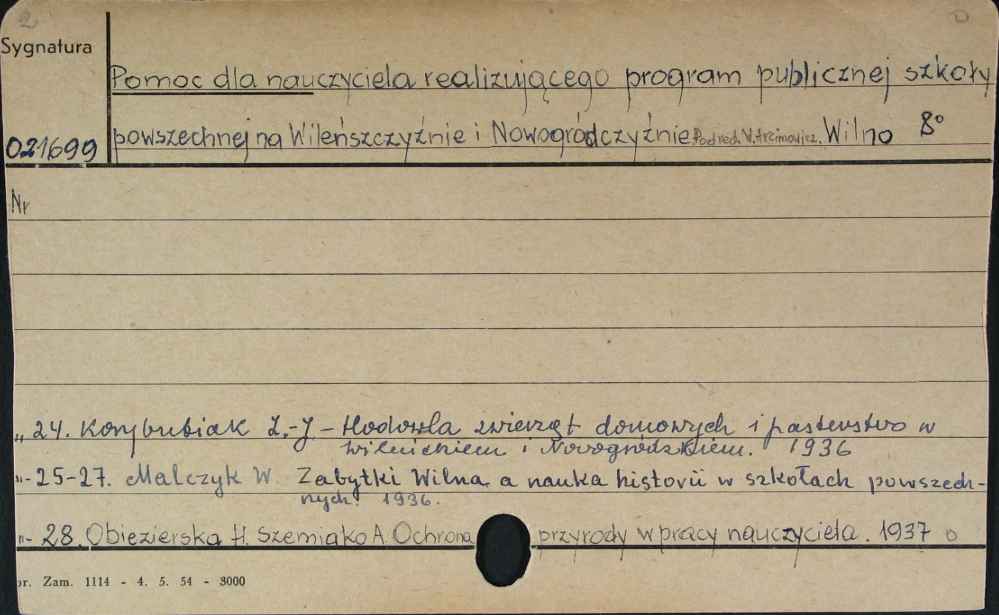 2
Sygnatura
Pomoc dla nauczyciela realizującego program publicznej szkoły
021699 powszechnej na Wileńszczyźnie i Nowogródczyźnie. Pod red. W. Arcimowicz. Wilno 8°
Nr
„ 24. Korybutiak Z.-J - Hodowla zwierząt domowych i pasterstwo w
Wileńskiem i Nowogródzkiem. 1936
"- 25-27. Malczyk W. Zabytki Wilna a nauka historii w szkołach powszech-
nych. 1936.
"- 28. Obiezierska H. Szemiako A. Ochrona przyrody w pracy nauczyciela. 1937
pr. Zam. 1114 - 4. 5. 54 - 3000